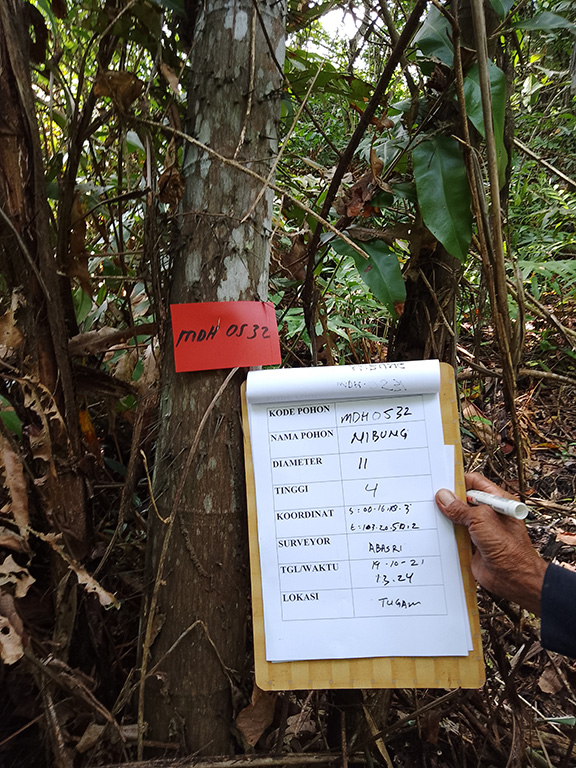 MDH 0532
KODE POHON MDH 0532
NAMA POHON NIBUNG
DIAMETER 11
TINGGI 4
KOORDINAT S: 00.16.18.3
E: 103.20.50.2
SURVEYOR ABASRI
TGL/WAKTU 19-10-21
13.24
LOKASI